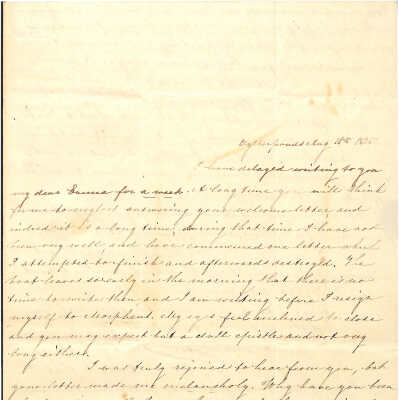 Oysterponds Aug 18th 1835
I have delayed writing to you
my dear Emma for a week. A long time you will think
for me to neglect answering your welcome letter and
indeed it is a long time, during that time I have not
been very well, and have commenced one letter which
I attempted to finish and afterwards destroyed. The
boat leaves so early in the morning that there is no
time to write then and I am writing before I resign
myself to Morpheus. My eyes feel inclined to close
and you may expect but a dull epistle and not very
long either.
I was truly rejoiced to hear from you, but
your letter made me melancholy. Why have you been